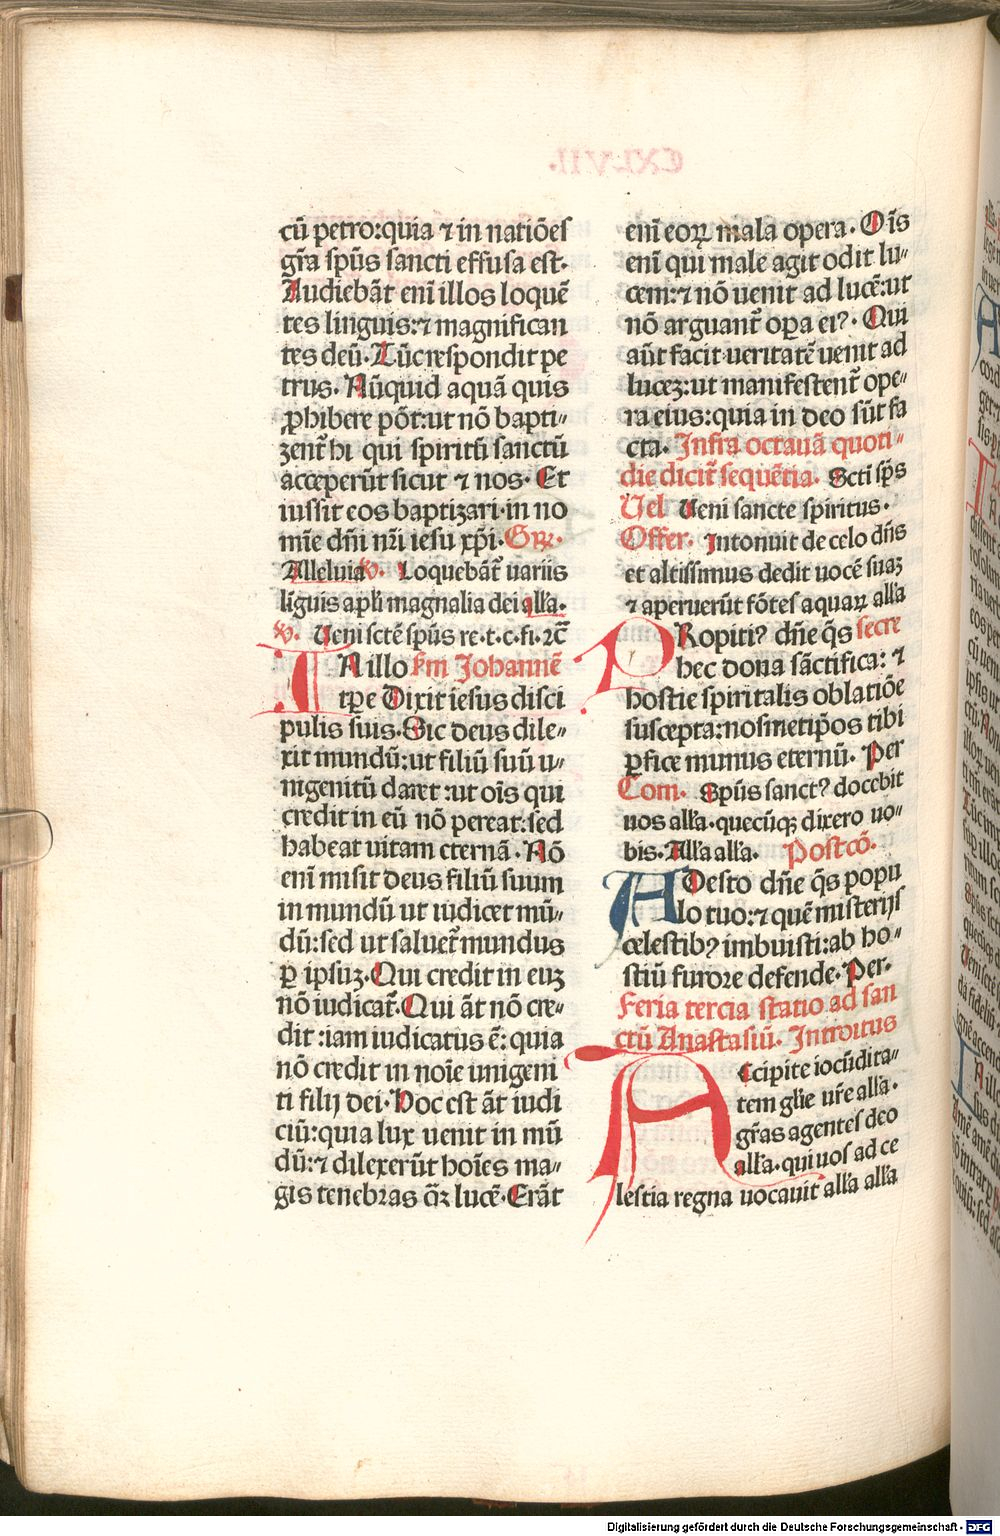 cū petro:quia ⁊ in natiōes
gr̄a spūs sancti effusa est.
Audiebāt enī illos loquē
tes linguis:⁊ magnifican
tes deū. Tūc respondit pe
trus. Nūquid aquā quis
ꝓhibere pōt:ut nō bapti⸗
zent̄ hi qui spiritū sanctū
acceperūt sicut ⁊ nos. Et
iussit eos baptizari in no
mīe dn̄i nr̄i iesu xp̄i. Grꝝ.
Alleluia v̄. Loquebāt̄ uariis
līguis apl̄i magnalia dei all̄a.
v̄. Ueni sctē spūs re.t.c.fi.⁊c̄
IN illo km̄ Johannē
tꝑe Dixit iesus disci
pulis suis. Sic deus dile⸗
xit mundū:ut filiū suū u⸗
nigenitū daret:ut oīs qui
credit in eū nō pereat:sed
habeat uitam eternā. Nō
enī misit deus filiū suum
in mundū ut iudicet mū⸗
dū:sed ut saluet̄ mundus
ꝑ ipsuꝫ. Qui credit in euꝫ
nō iudicat̄. Qui āt nō cre⸗
dit:iam iudicatus ē: quia
nō credit in noīe unigeni
ti filij dei. Hoc est āt iudi
ciū:quia lux uenit in mū
dū:⁊ dilexerūt hoīes ma⸗
gis tenebras q̄ꝫ lucē. Erāt
enī eoꝝ mala opera. Oīs
enī qui male agit odit lu⸗
cem:⁊ nō uenit ad lucē:ut
nō arguant̄ oꝑa eiꝰ. Qui
aūt facit ueritatē uenit ad
luceꝫ:ut manifestent̄ ope⸗
ra eius:quia in deo sūt fa
cta. Infra octauā quoti⸗
die dicit̄ sequētia. Scti sp̄s
Uel Ueni sancte spiritus.
Offer. Intonuit de celo dn̄s
et altissimus dedit uocē suaꝫ
⁊ aperuerūt fōtes aquaꝝ all̄a
PRopitiꝰ dn̄e q̄s secre
hec dona sāctifica: ⁊
hostie spiritalis oblatiōe
suscepta:nosmetip̄os tibi
ꝑfice munus eternū. Per
Com. Spūs sanctꝰ docebit
uos all̄a.quecūqꝫ dixero uo⸗
bis. All̄a all̄a. Postcō.
ADesto dn̄e q̄s popu
lo tuo:⁊ quē misterijs
celestibꝰ imbuisti:ab ho⸗
stiū furore defende. Per.
Feria tercia statio ad san
ctū Anastasiū. Introitus
Accipite iocūdita⸗
tem gl̄ie ur̄e all̄a.
gr̄as agentes deo
all̄a.qui uos ad ce
lestia regna uocauit all̄a all̄a
Digitalisierung gefördert durch die Deutsche Forschungsgemeinschaft - DFG